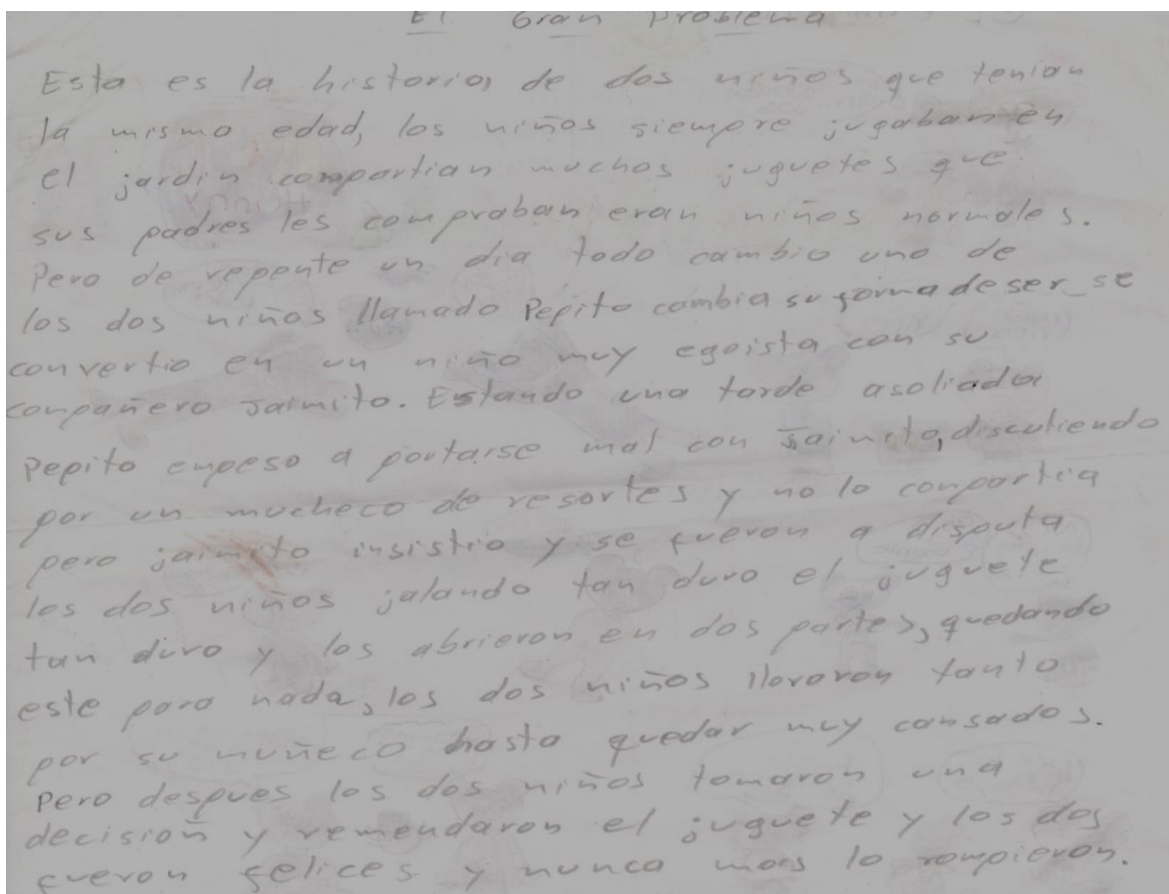 El Gran Problema
Esta es la historia, de dos niños que tenian
la misma edad, los niños siempre jugaban en
el jardin compartian muchos juguetes que
sus padres les compraban eran niños normales.
Pero de repente un dia todo cambio uno de
los dos niños llamado Pepito cambia su forma de ser se
convertio en un niño muy egoista con su
compañero Jaimito. Estando una tarde asoliada
Pepito empeso a portarse mal con Jaimito, discutiendo
por un mucheco de resortes y no lo compartia
pero jaimito insistio y se fueron a disputa
los dos niños jalando tan duro el juguete
tan duro y los abrieron en dos partes, quedando
este para nada, los dos niños lloraron tanto
por su muñeco hasta quedar muy cansados.
Pero despues los dos niños tomaron una
decisioñ y remendaron el juguete y los dos
fueron felices y nunca mas lo rompieron.